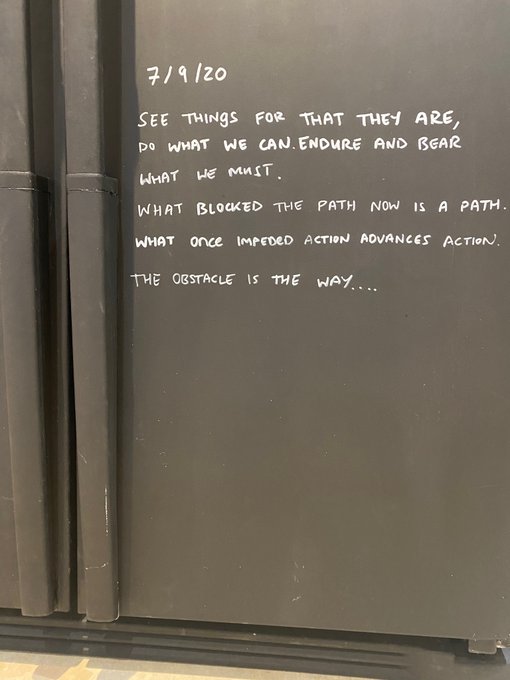 7/9/20
SEE THINGS FOR THAT THEY ARE,
DO WHAT WE CAN. ENDURE AND BEAR
WHAT WE MUST.
WHAT BLOCKED THE PATH NOW IS A PATH.
WHAT ONCE IMPEDED ACTION ADVANCES ACTION.
THE OBSTACLE IS THE WAY....